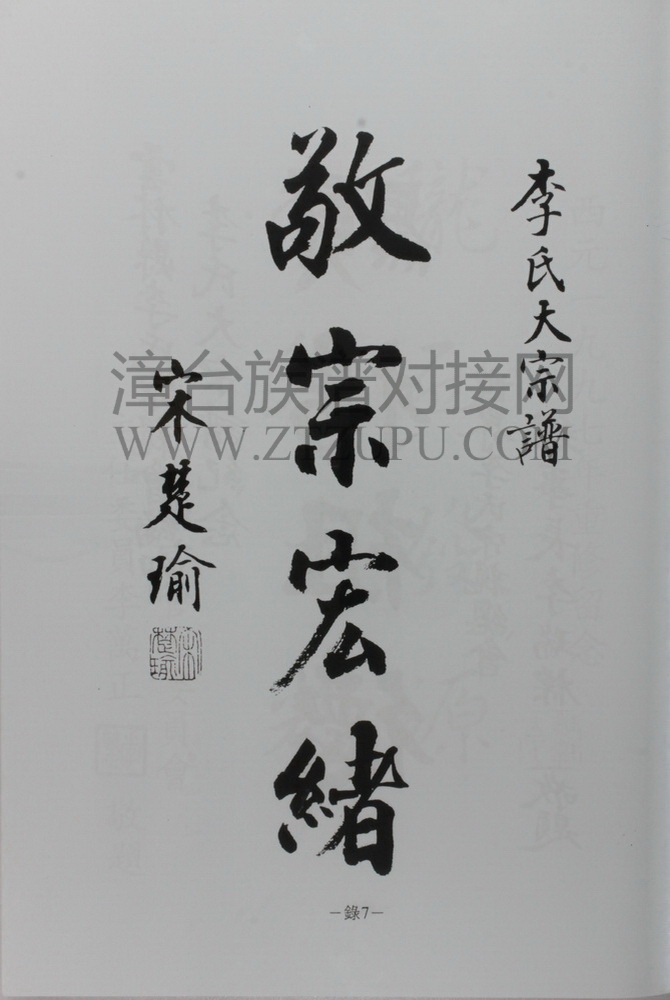 李氏大宗譜
敬宗宏緒
宋楚瑜
宋楚瑜
漳台族谱对接网
WWW.ZTZUPU.COM
—錄7—